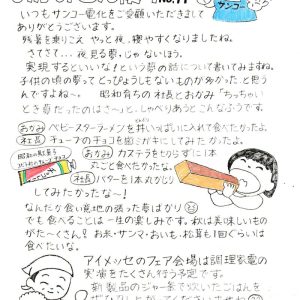 サンコー
いつもサンコー電化をご愛顧いただきまして
ありがとうございます。
残暑を乗りこえ やっと夜、寝やすくなりましたね。
さてさて... 夜見る夢、じゃないほう。
実現するといいな!という夢の話について書いてみますね。
子供の頃の夢ってとっぴょうしもないものがあった、と思う
んですよね〜。 昭和育ちの社長とおかみ「ちっちゃい
とき夢だったのはさ〜」と、しゃべりあうとこんなふうです。
おかみ ベビースターラーメンを丼いっぱいに入れて食べたかったよ。
社長 チューブのチョコを
してみたかったよ。
おかみ カステラを切らずに1本
まるごと食べたかったな。
社長 バターを1本丸かじり
してみたかったな〜!
なんだか食い意地の張った夢ばかり
でも食べることは一生の楽しみです。秋は美味しいもの
がた〜くさん!お米・サンマ・おいも・松茸も1回ぐらいは
食べたいな。
アイメッセのフェア会場は調理家電の
実演をたくさん行う予定です。
新製品のジャー